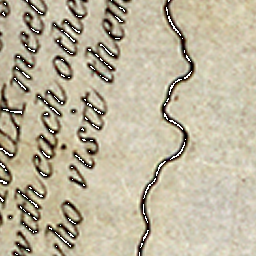 meet
with each other
who visit them